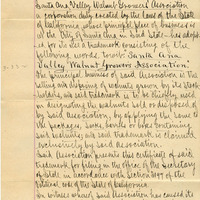 Santa Ana Valley Walnut Growers' Association
a corporation duly created by the laws of the State
of California whose principal place of business is
the City of Santa Ana in said State has adopt-
ed for its use a trademark consisting of the
following words to wit: "Santa Ana
Valley Walnut Growers Association."
The principal business of said Association is the
selling and disposing of walnuts grown by its stock-
holders, and said trademark is to be chiefly used
in designating the walnuts sold or disposed of
by said Association, by applying the same to
the packages, sacks, or boxes containing
said walnuts, and said trademark is claimed
exclusively by said Association.
Said Association presents this certificate of said
trademark for filing in the office of the Secretary
of State in accordance with section 3197 of the
Political Code of the State of California.
In witness whereof said Association has caused its